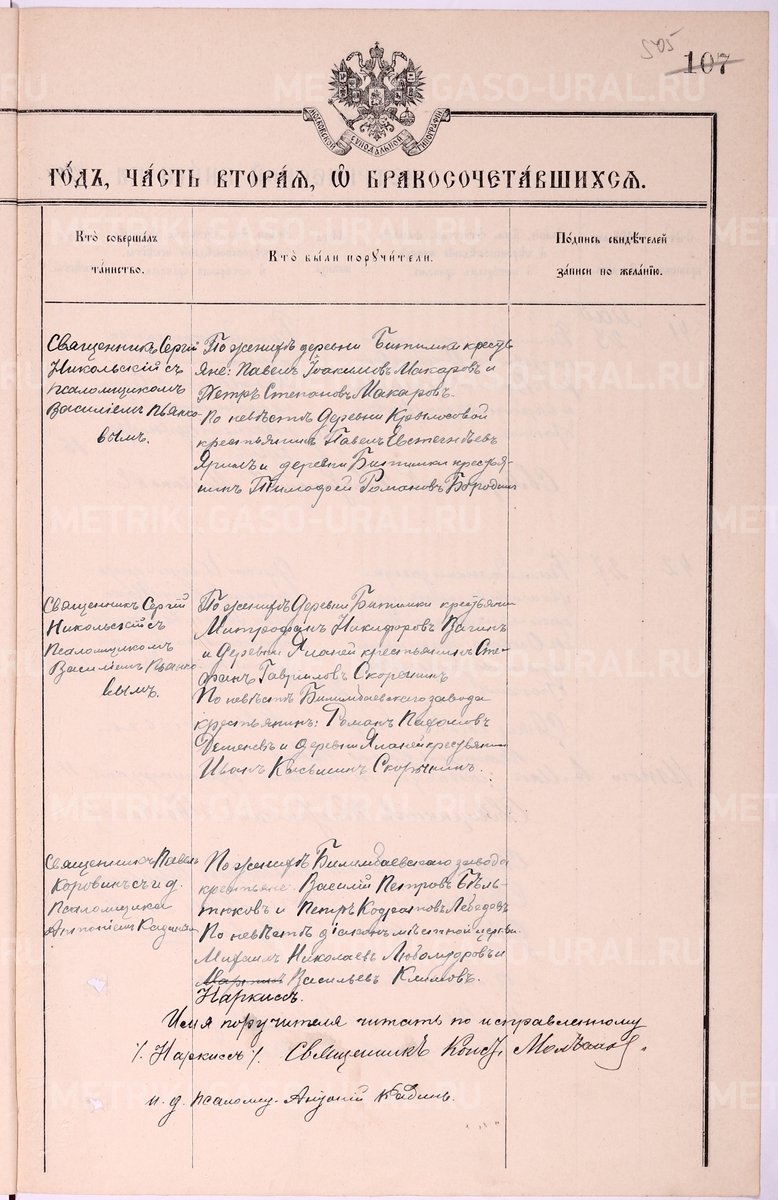 505
107
МОСКОВСКОЙ СѴНОДАЛЬНОЙ ТИПОГРАФІИ
ГО́ДЪ, ЧА́СТЬ ВТОРА́Я, Ѡ҆ БРАКОСОЧЕТА́ВШИХСЯ.
Кто̀ соверша́лъ
та́инство.
Кто̀ бы́ли порꙋчи́тели.
По́дпись свидѣ́телей
за́писи по жела́нію.
Священникъ Сергій
Никольскій съ
псаломщикомъ
Василіемъ Пьянко-
вымъ.
По женихѣ деревни Битимки кресть
яне: Павелъ Іоакимовъ Макаровъ и
Петръ Степановъ Макаровъ.
По невѣстѣ деревни Крылосовой
крестьянинъ Павелъ Евстигнѣевъ
и деревни Битимки крестья-
нинъ Тимофей Романовъ Бородинъ
Священникъ Сергій
Никольскій съ
Псаломщикомъ
Василіемъ Пьянко-
вымъ.
По женихѣ деревни Битимки крестьянинъ
Митрофанъ Никифоровъ Вагинъ
и деревни крестьянинъ Сте-
фанъ Гавриловъ Скорынинъ
По невѣстѣ Билимбаевскаго завода
крестьянинъ: Романъ
и деревни крестьянинъ
Иванъ Косьминъ Скорынинъ.
Священникъ Павелъ
Коровинъ съ и. д.
псаломщика
Антоніем Кадинымъ
По женихѣ Билимбаевскаго завода
крестьяне: Василій Петровъ Бѣль-
тюковъ и Петръ Кодратовъ Лебедевъ
По невѣстѣ діаконъ мѣстной церкви
Михаилъ Николаевъ Любомудровъ и
Мартинъ Васильевъ Климовъ.
Наркиссъ.
Имя поручителя читать по исправленному
% Наркиссъ %. Священникъ Конст.
и. д. псаломщ. Антоній Кадинъ.
METRIKI.GASO-URAL.RU